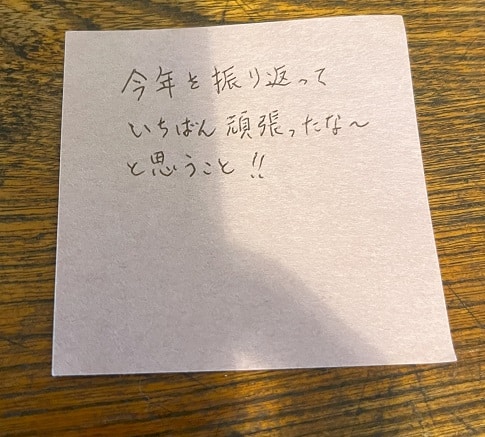 今年を振り返って
いちばん頑張ったな〜
と思うこと!!